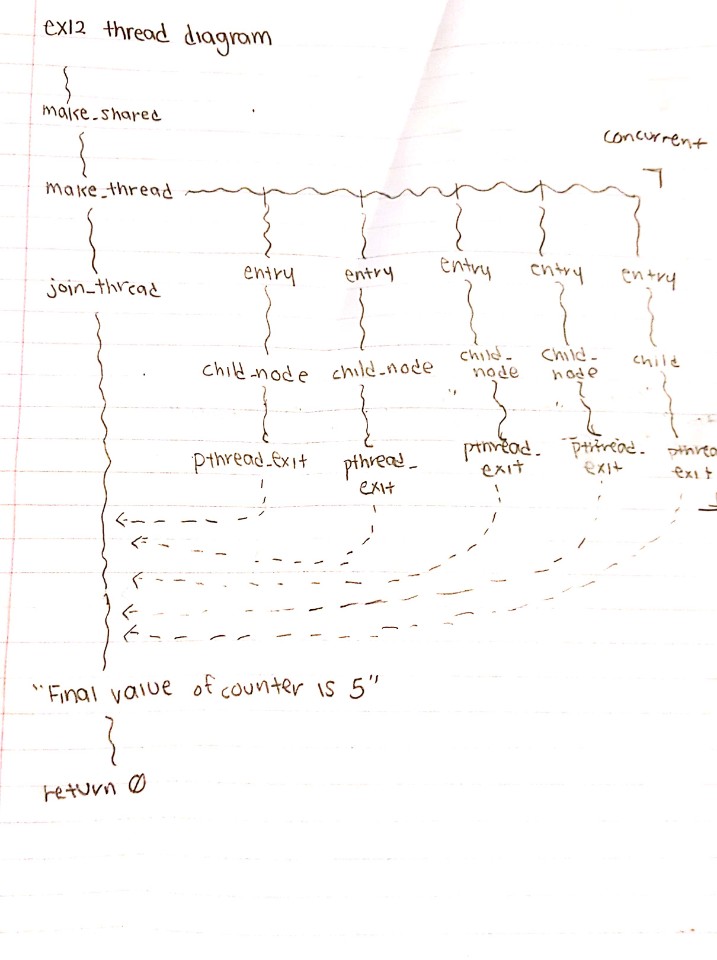 ex12 thread diagram
make_shared
concurrent
make_thread
entry entry entry entry entry
join_thread
child_node child_node child_node child_node child
pthread_exit pthread_exit pthread_exit pthread_exit pthrea
exit
"Final value of counter is 5"
return 0